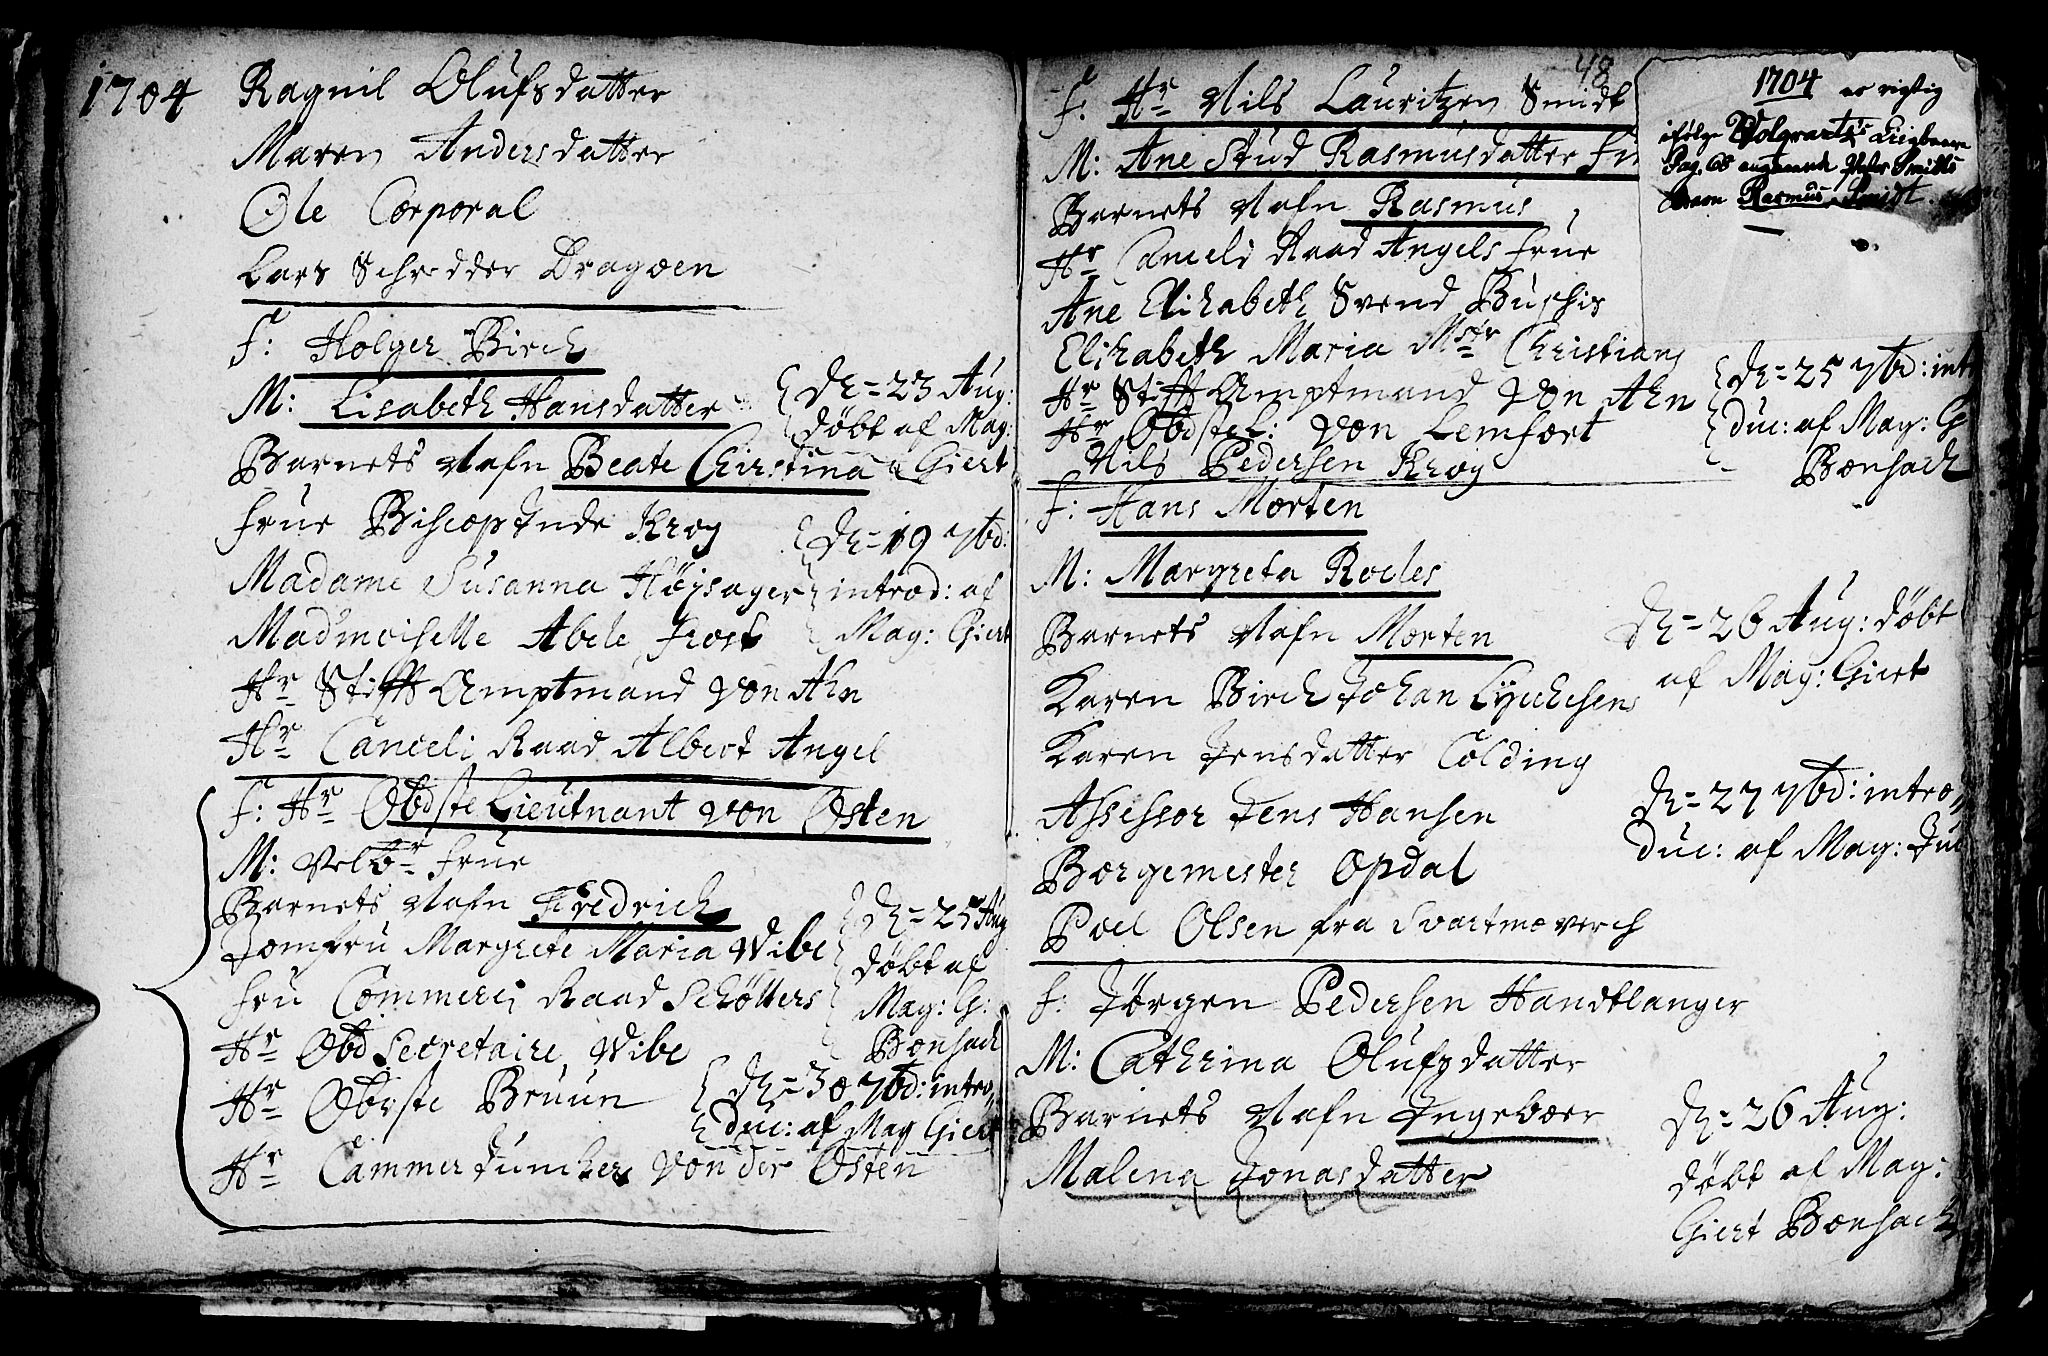 1704
Ragnil Olufsdatter
Maren Andersdatter
Ole Corporal
Lars Schrødder Dragoen
F: Holger Birch
M: Lisabeth Hansdatter
Barnets Nafn Beate Christina
Frue Biscopinde Krog
Madame Susanna Højsager
Mad'moiselle Abele Frost
Hr Stifft Amptmand von Ahn
Hr Cancelj Raad Albert Angel
D: 23 Aug:
døbt af Mag:
Giert
D: 19 7bd:
introd: af
Mag: Giert
F: Hr Obdste Lieutnant von Osten
M: Velbr Frue
Barnets Nafn Fredrich
Jomfru Margrete Maria Wibe
Fru Commerci Raad Schøllers
Hr Obd Secretaire Wibe
Hr Oberste Bruun
Hr Cammer Juncher von der Osten
D: 25 Aug
døbt af
Mag: G:
Bonsach
D: 30 7bd: intro
duc: af Mag Giert
48
F: Hr Nils Lauritzen Smidt
M: Ane Stud Rasmusdatter
Barnets Nafn Rasmus
Hr Cancelj Raad Angels Frue
Ane Elisabeth Svend Buschis
Elisabeth Maria Mstr Christians
Hr Stifft Amptmand von Ahn
Hr Obdste L: von Lemfort
Nils Pedersen Krog
1704 er rigtig
ifølge
Pag. 68 angaaende Peter Smidts
Rasmus Smidt
D: 25 7bd: int
duc: af Mag: G
Bonsach
F: Hans Morten
M: Margreta Roeles
Barnets Nafn Morten
Karen Birch Johan Lyckchens
Karen Jensdatter Colding
Assessor Jens Hansen
Borgemester Opdal
Poel Olsen fra Svartmoverch
D: 26 Aug: døbt
af Mag: Giert
D: 27 7bd: intro
duc: af Mag: Jud
F: Jørgen Pedersen Handtlanger
M: Cathrina Olufsdatter
Barnets Nafn Ingeboer
Malena Jonasdatter
D: 26 Aug:
døbt af Mag:
Giert Bonsach